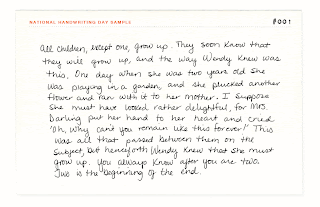 NATIONAL HANDWRITING DAY SAMPLE
#001
All children, except one, grow up. They soon know that
they will grow up, and the way Wendy knew was
this. One day when she was two years old she
was playing in a garden, and she plucked another
flower and ran with it to her mother. I suppose
she must have looked rather delightful, for Mrs.
Darling put her hand to her heart and cried
"Oh, why can't you remain like this forever!" This
was all that passed between them on the
subject, but henceforth Wendy knew that she must
grow up. You always know after you are two.
Two is the beginning of the end.